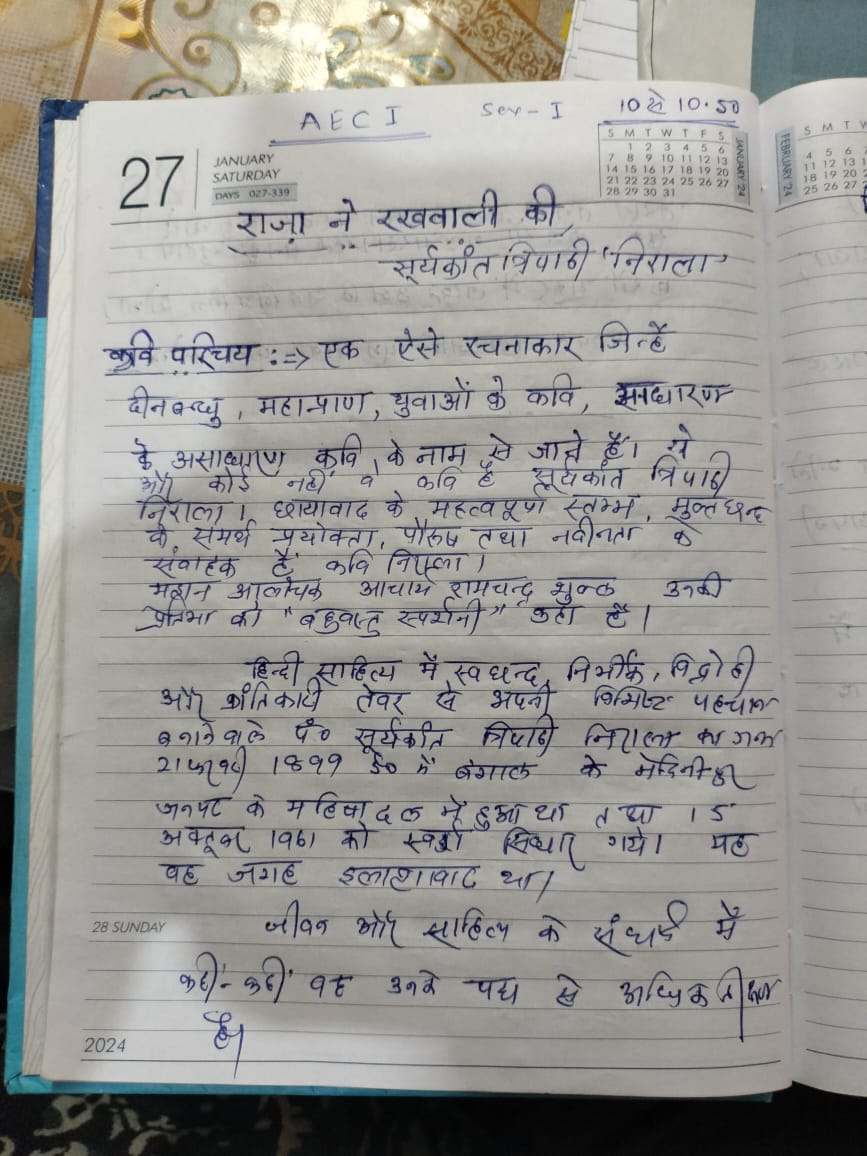 AEC I Sem - I 10 से 10.50
27 JANUARY
SATURDAY
DAYS 027-339
S M T W T F S
1 2 3 4 5 6
7 8 9 10 11 12 13
14 15 16 17 18 19 20
21 22 23 24 25 26 27
28 29 30 31
JANUARY '24
FEBRUARY '24
S M T W
4 5 6
11 12 13
18 19 20
25 26 27
राजा ने रखवाली की
सूर्यकांत त्रिपाठी 'निराला'
कवि परिचय :=> एक ऐसे रचनाकार जिन्हें
दीनबन्धु, महाप्राण, युवाओं के कवि,
के असाधारण कवि, के नाम से जाने हैं। ये
और कोई नहीं वे कवि है सूर्यकांत त्रिपाठी
निराला। छायावाद के महत्वपूर्ण स्तम्भ, मुक्तछन्द
के समर्थ प्रयोक्ता, पौरुष तथा नवीनता के
संवाहक हैं कवि निराला।
महान आलोचक आचार्य रामचन्द्र शुक्ल उनकी
प्रतिभा को "बहुवस्तु स्पर्शनी" कहा है।
हिन्दी साहित्य में स्वछन्द, निर्भीक, विद्रोही
और क्रांतिकारी तेवर से अपनी विशिष्ट पहचान
बनाने वाले पं० सूर्यकांत त्रिपाठी निराला का जन्म
21 फरवरी 1899 ई० में बंगाल के मेदिनीपुर
जनपद के महिषादल में हुआ था तथा 15
अक्टूबर 1961 को स्वर्ग सिधार गये। यह
वह जगह इलाहाबाद था।
28 SUNDAY
जीवन और साहित्य के संघर्ष में
कहीं-कहीं वह उनके पद्य से अधिक
है।
2024